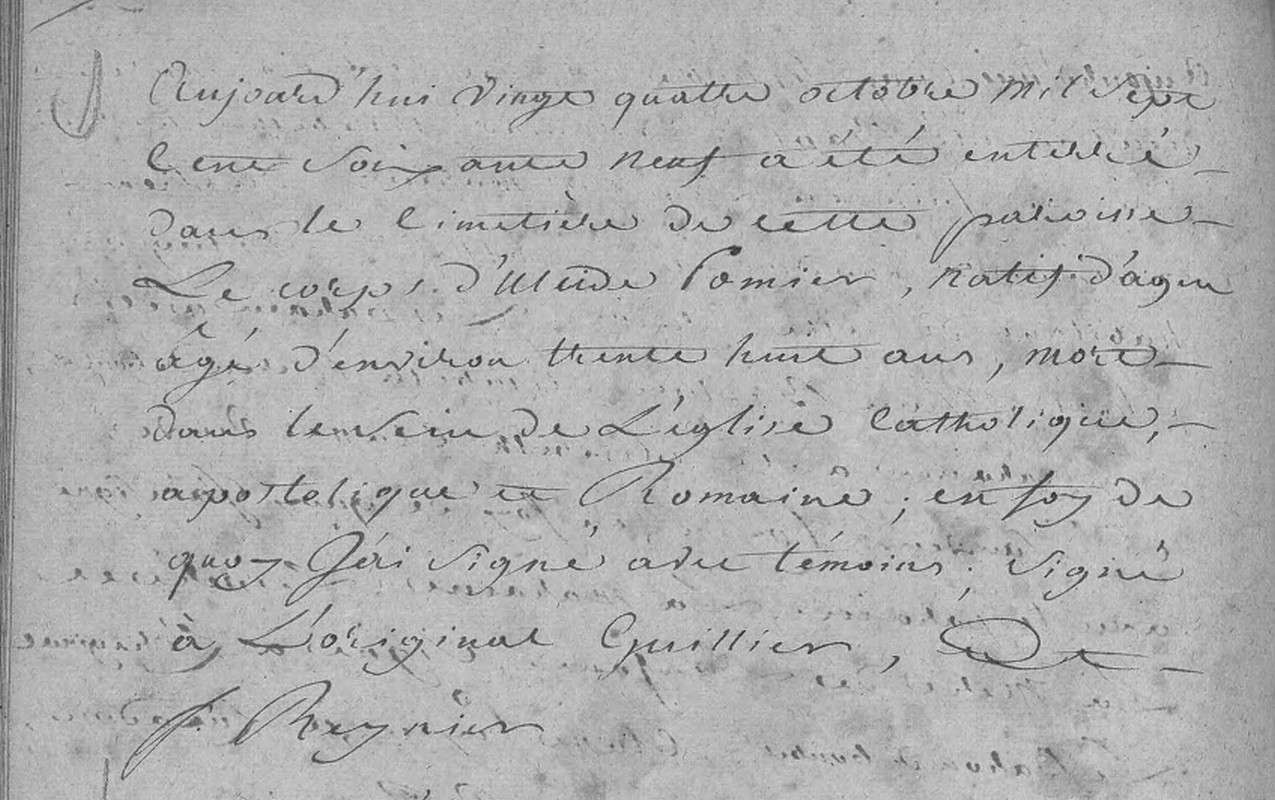 Aujourd'hui vingt quatre octobre mil sept
Cent soixante neuf a été enterré
dans le Cimetière de cette paroisse
Le corps d' Pomier, natif d'agen
âgé d'environ trente huit ans, mort
dans le sein de L'église Catholique,
apostolique et Romaine, en foy de
quoy J'ai signé avec témoins. Signé
à L'original Guillier, De
f. Reynier